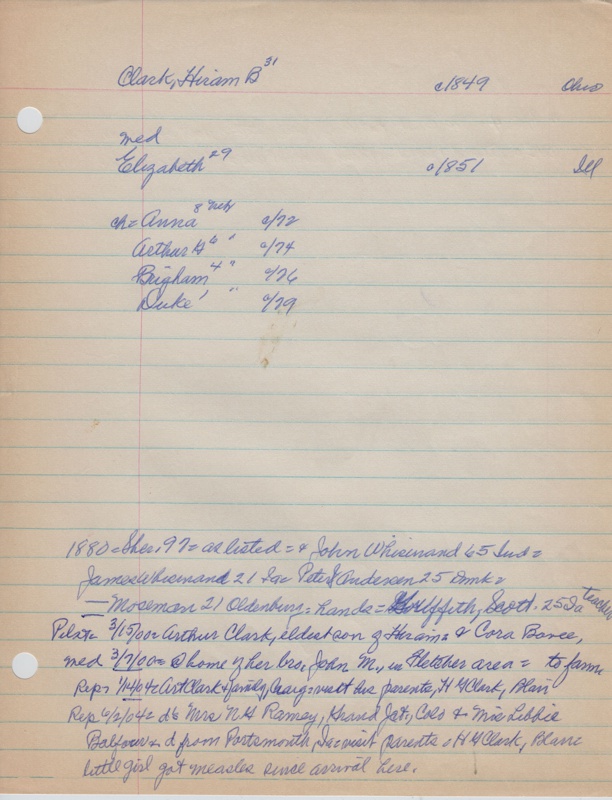 Clark, Hiram B 31 c1849 Ohio
med
Elizabeth 29 c/1851 Ill
ch= Anna 8 Neb c/72
Arthur H 6 " c/74
Brigham 4 " c/76
Duke 1 " c/79
1880= Sher. 97= as listed= & John Whisinand 65 Ind=
James Whisinand 21 Ia= Peter Andersen 25 Dmk=
— Moseman 21 Oldenburg= hands= Griffith, Scott. 25 Ia teacher
Pilot= 3/15/00= Arthur Clark, eldest son of Hiram= & Cora
med 3/7/00= @ home of her bro. John M., in Fletcher area= to farm
Rep= 1/14/04= Art Clark & family, Craig= visit his parents, H Clark, Blair
Rep 6/2/04= d's Mrs N H Ramsey, Grand Jct, Colo & Miss Libbie
Balfour= d from Portsmouth, Ia= visit parents H Clark, Blair
little girl got measles since arrival here.